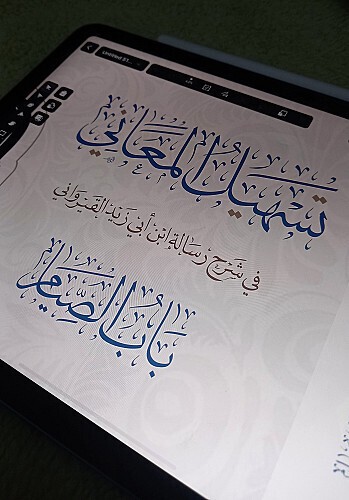 Untitled 31...
تسهيل المعاني
في شرح رسالة ابن أبي زيد القيرواني
باب الصيام